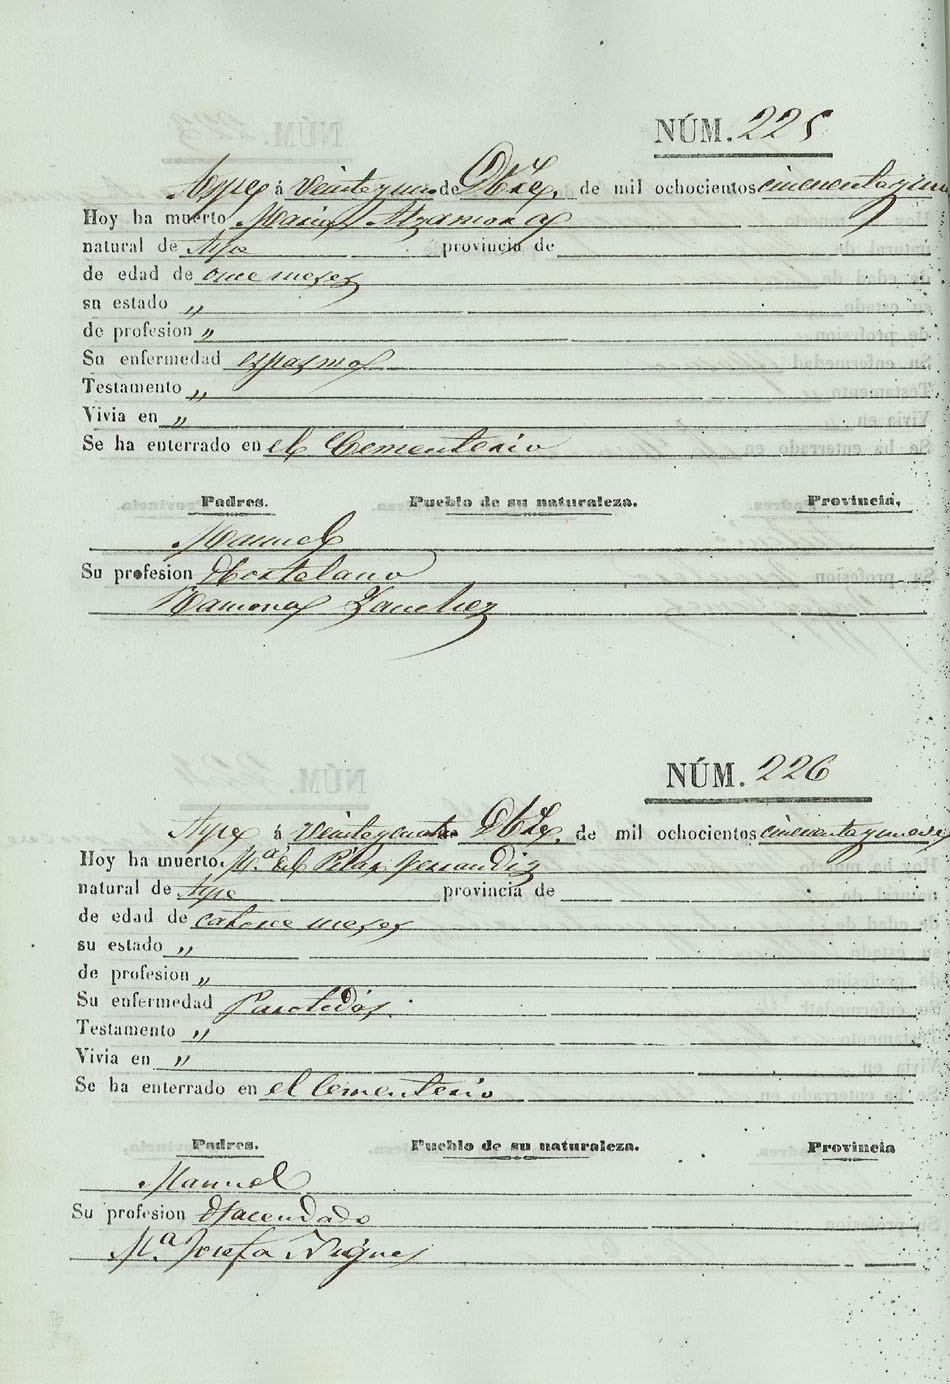 NÚM. 225
Aspe á veinteyuno de Dbre. de mil ochocientos
Hoy ha muerto Maria Alzamora
natural de Aspe provincia de
de edad de once meses
su estado „
de profesion „
Su enfermedad espasmo
Testamento „
Vivia en „
Se ha enterrado en el Cementerio
Padres. Pueblo de su naturaleza. Provincia,
Manuel
Su profesion Hortelano
Ramona Sanchez
NÚM. 226
Aspe á veinteycuatro Dbre. de mil ochocientos
Hoy ha muerto Mª. del Pilar
natural de Aspe provincia de
de edad de catorce meses
su estado „
de profesion „
Su enfermedad Parotidas.
Testamento „
Vivia en „
Se ha enterrado en el Cementerio
Padres. Pueblo de su naturaleza. Provincia
Manuel
Su profesion Hacendado
Mª Josefa